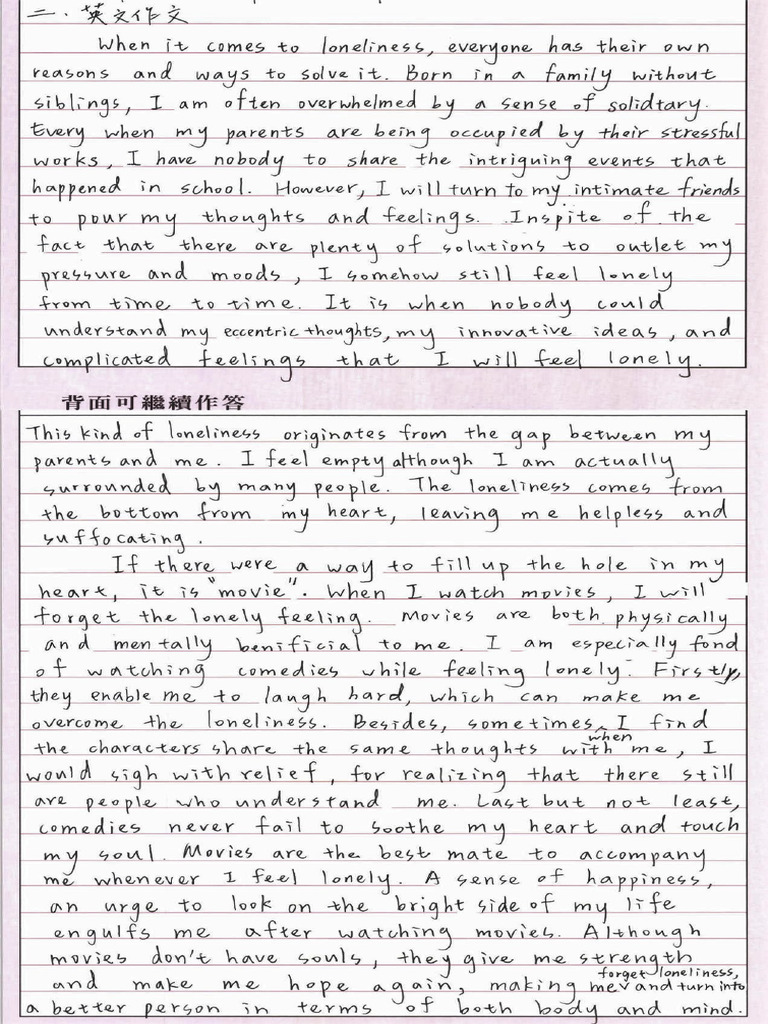 二、英文作文
When it comes to loneliness, everyone has their own
reasons and ways to solve it. Born in a family without
siblings, I am often overwhelmed by a sense of solidtary.
Every when my parents are being occupied by their stressful
works, I have nobody to share the intriguing events that
happened in school. However, I will turn to my intimate friends
to pour my thoughts and feelings. Inspite of the
fact that there are plenty of solutions to outlet my
pressure and moods, I somehow still feel lonely
from time to time. It is when nobody could
understand my eccentric thoughts, my innovative ideas, and
complicated feelings that I will feel lonely.
背面可繼續作答
This kind of loneliness originates from the gap between my
parents and me. I feel empty although I am actually
surrounded by many people. The loneliness comes from
the bottom from my heart, leaving me helpless and
suffocating.
If there were a way to fill up the hole in my
heart, it is "movie". When I watch movies, I will
forget the lonely feeling. Movies are both physically
and mentally benificial to me. I am especially fond
of watching comedies while feeling lonely. Firstly,
they enable me to laugh hard, which can make me
overcome the loneliness. Besides, sometimes when I find
the characters share the same thoughts with me, I
would sigh with relief, for realizing that there still
are people who understand me. Last but not least,
comedies never fail to soothe my heart and touch
my soul. Movies are the best mate to accompany
me whenever I feel lonely. A sense of happiness,
an urge to look on the bright side of my life
engulfs me after watching movies. Although
movies don't have souls, they give me strength
and make me hope again, making me forget loneliness, and turn into
a better person in terms of both body and mind.